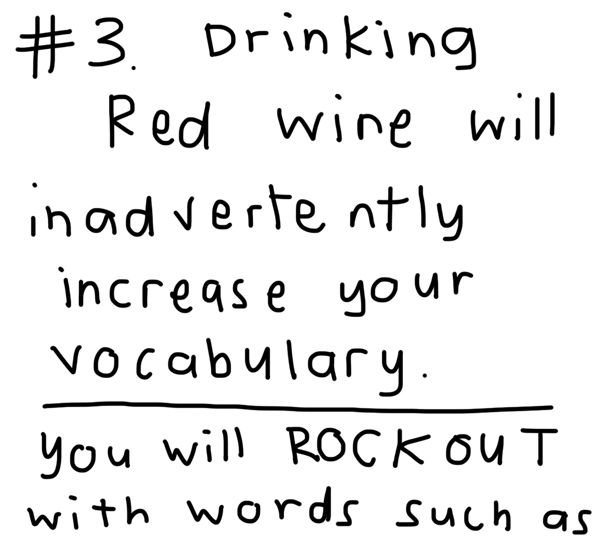 #3. Drinking
Red wine will
inadvertently
increase your
vocabulary.
you will ROCK OUT
with words such as